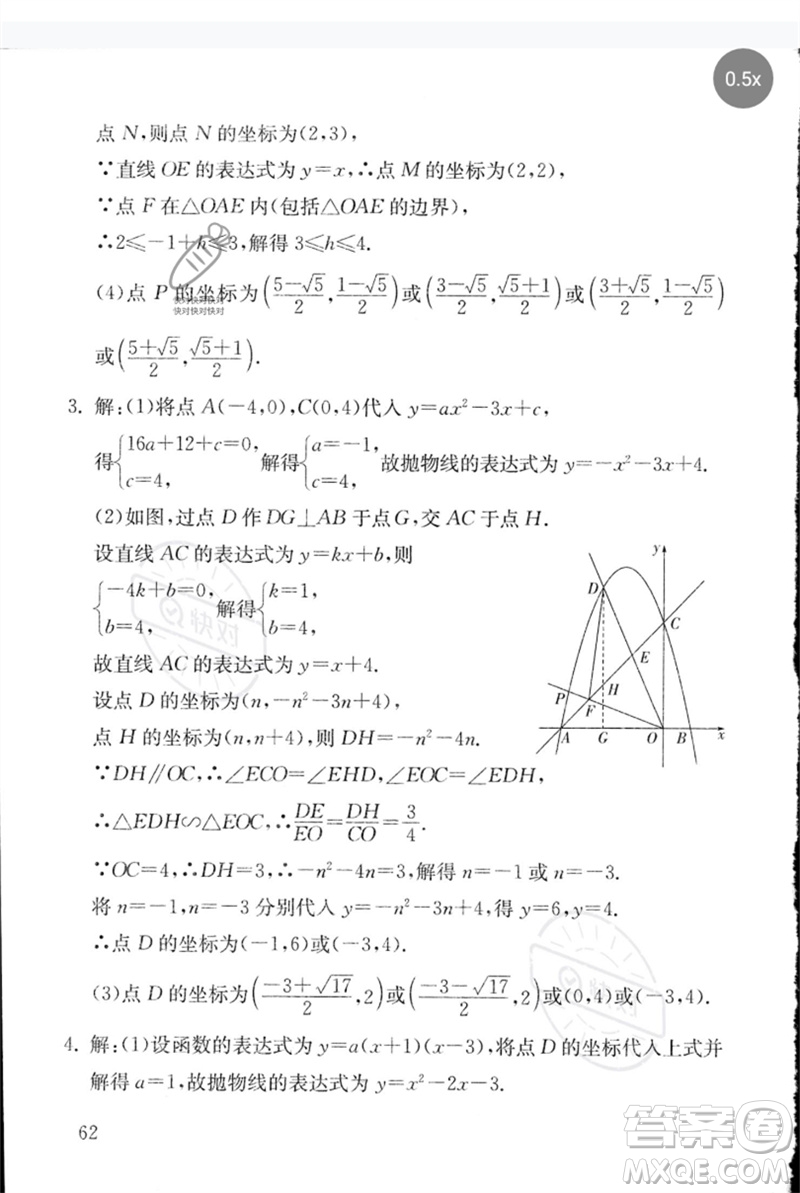 0.5x
点 N,则点 N 的坐标为(2,3),
∵直线 OE 的表达式为 y=x,∴点 M 的坐标为(2,2),
∵点 F 在△OAE 内(包括△OAE 的边界),
∴2≤-1+h≤3,解得 3≤h≤4.
(4)点 P 的坐标为((5-√5)/2,(1-√5)/2)或((3-√5)/2,(√5+1)/2)或((3+√5)/2,(1-√5)/2)
快对快对快对
快对快对快对
或((5+√5)/2,(√5+1)/2).
3. 解:(1)将点 A(-4,0),C(0,4)代入 y=ax²-3x+c,
得{16a+12+c=0, c=4, 解得{a=-1, c=4, 故抛物线的表达式为 y=-x²-3x+4.
(2)如图,过点 D 作 DG⊥AB 于点 G,交 AC 于点 H.
设直线 AC 的表达式为 y=kx+b,则
{-4k+b=0, b=4, 解得{k=1, b=4,
故直线 AC 的表达式为 y=x+4.
设点 D 的坐标为(n,-n²-3n+4),
点 H 的坐标为(n,n+4),则 DH=-n²-4n.
y
D
C
E
P
H
F
A
G
O
B
x
快对
∵DH∥OC,∴∠ECO=∠EHD,∠EOC=∠EDH,
∴△EDH∽△EOC,∴DE/EO=DH/CO=3/4.
∵OC=4,∴DH=3,∴-n²-4n=3,解得 n=-1 或 n=-3.
将 n=-1,n=-3 分别代入 y=-n²-3n+4,得 y=6,y=4.
∴点 D 的坐标为(-1,6)或(-3,4).
(3)点 D 的坐标为((-3+√17)/2,2)或((-3-√17)/2,2)或(0,4)或(-3,4).
快对
4. 解:(1)设函数的表达式为 y=a(x+1)(x-3),将点 D 的坐标代入上式并
解得 a=1,故抛物线的表达式为 y=x²-2x-3.
62
答案圈
MXQE.COM